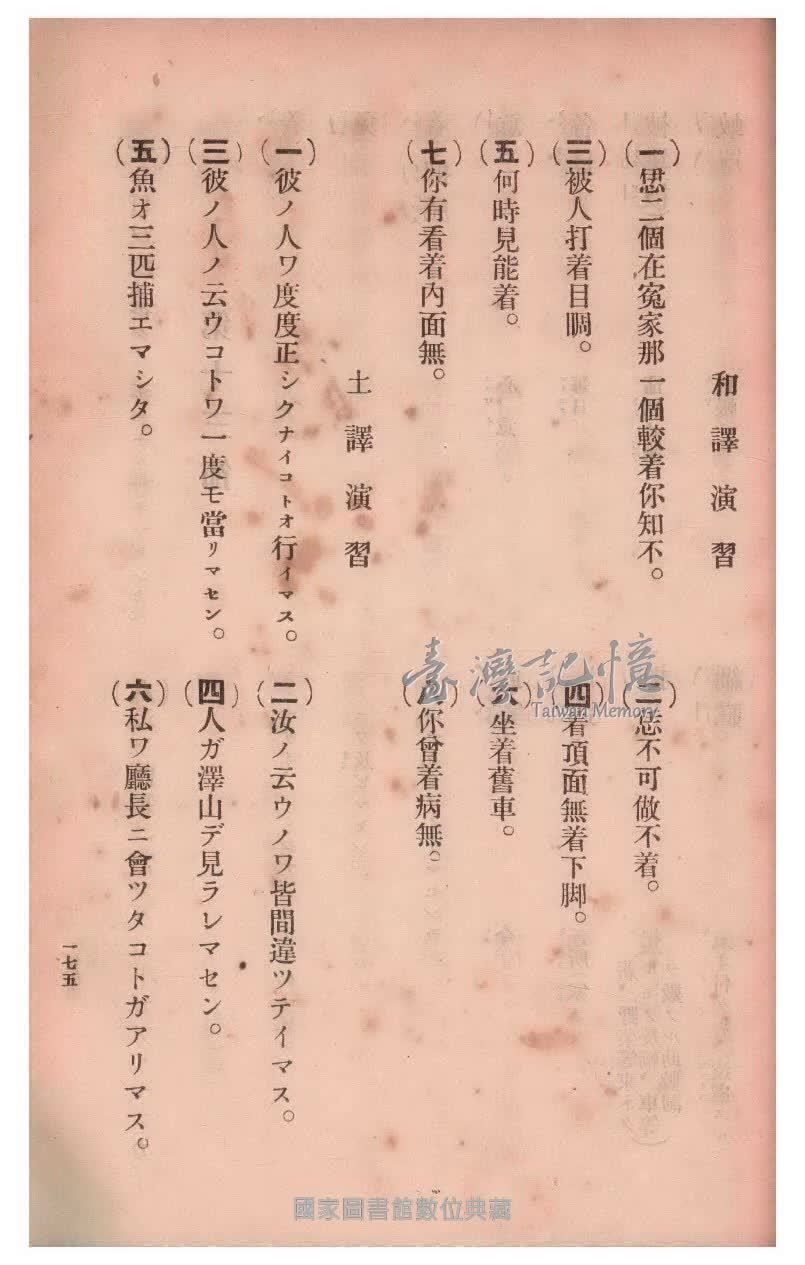 和譯演習
(一)恁二個在寃家那一個較着你知不。
(二)恁不可做不着。
(三)被人打着目睭。
(四)着頂面無着下脚。
(五)何時見能着。
(六)坐着舊車。
(七)你有看着內面無。
(八)你曾着病無。
土譯演習
(一)彼ノ人ワ度度正シクナイコトオ行イマス。
(二)汝ノ云ウノワ皆間違ツテイマス。
(三)彼ノ人ノ云ウコトワ一度モ當リマセン。
(四)人ガ澤山デ見ラレマセン。
(五)魚オ三匹捕エマシタ。
(六)私ワ廳長ニ會ツタコトガアリマス。
一七五
臺灣記憶
Taiwan Memory
國家圖書館數位典藏